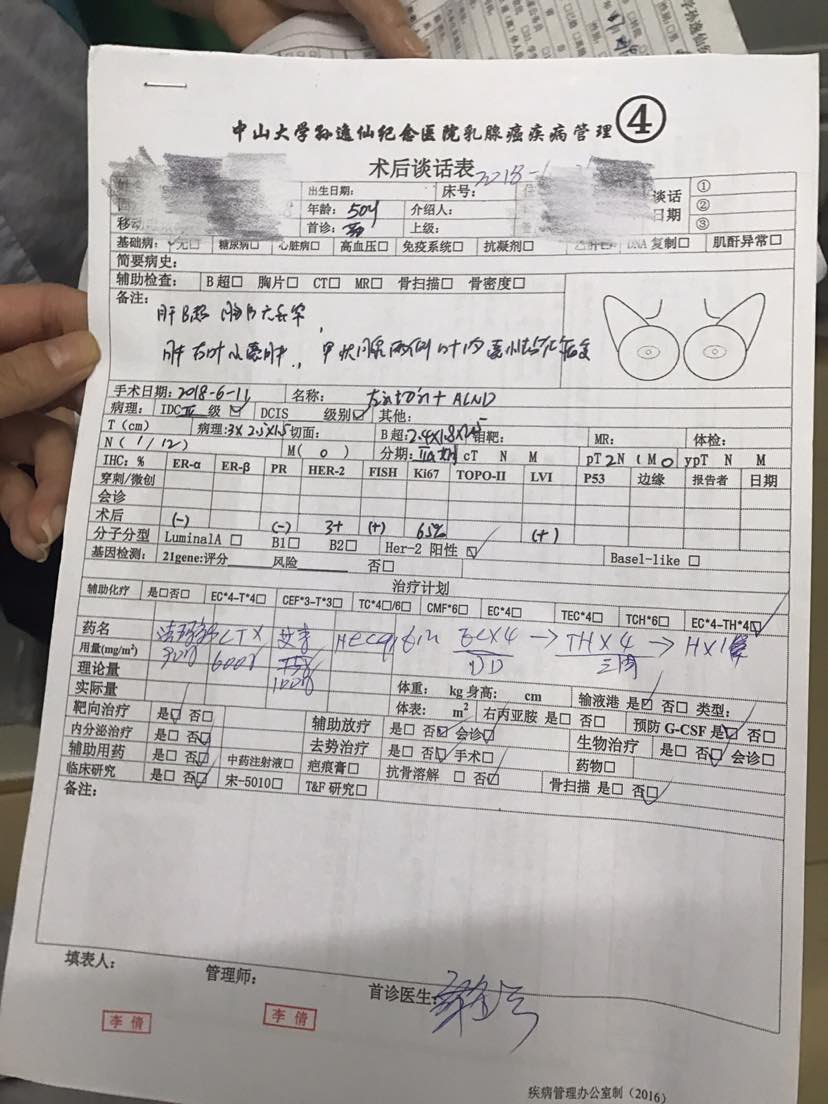 中山大学孙逸仙纪念医院乳腺癌疾病管理 ④
术后谈话表 2018-
出生日期： 床号： 谈话 ①
年龄：50y 介绍人： 日期 ②
移动 首诊： 上级： ③
基础病： 无□ 糖尿病□ 心脏病□ 高血压□ 免疫系统□ 抗凝剂□ DNA复制□ 肌酐异常□
简要病史：
辅助检查： B超□ 胸片□ CT□ MR□ 骨扫描□ 骨密度□
备注：
肝B超 胸片
肝右叶小囊肿， 甲状腺两侧叶内
手术日期：2018-6-11 名称： + ALND
病理： IDC III 级 ☑ DCIS 级别☑ 其他：
T（cm） 病理：3×2.5×1.5 切面： B超：2.4×1.8× 钼靶： MR： 体检：
N（1/12） M（0） 分期： cT N M pT2N1M0 ypT N M
IHC：% ER-α ER-β PR HER-2 FISH Ki67 TOPO-II LVI P53 边缘 报告者 日期
穿刺/微创
会诊
术后 (-) (-) 3+ (+) 65% (+)
分子分型 LuminalA □ B1□ B2□ Her-2 阳性☑ Basel-like □
基因检测： 21gene:评分 风险 否□
治疗计划
辅助化疗 是□否□ EC*4-T*4□ CEF*3-T*3□ TC*4□/6□ CMF*6□ EC*4□ TEC*4□ TCH*6□ EC*4-TH*4☑
药名 CTX 艾素 Herceptin EC×4 → TH×4 → H×1年
用量(mg/m²) 90 600 75 DD 三周
理论量 100
实际量 体重： kg 身高： cm 输液港 是☑ 否□ 类型：
体表： m² 右丙亚胺 是□ 否□ 预防 G-CSF 是☑ 否□
靶向治疗 是☑ 否□ 辅助放疗 是□ 否☑ 会诊☑ 生物治疗 是□ 否☑ 会诊□
内分泌治疗 是□ 否☑ 去势治疗 是□ 否☑ 手术□ 药物□
辅助用药 是□ 否☑ 中药注射液□ 疤痕膏□ 抗骨溶解 □ 否☑ 骨扫描 是□ 否☑
临床研究 是□ 否☑ 宋-5010□ T&F 研究□
备注：
填表人： 管理师： 首诊医生：
李倩 李倩
疾病管理办公室制（2016）